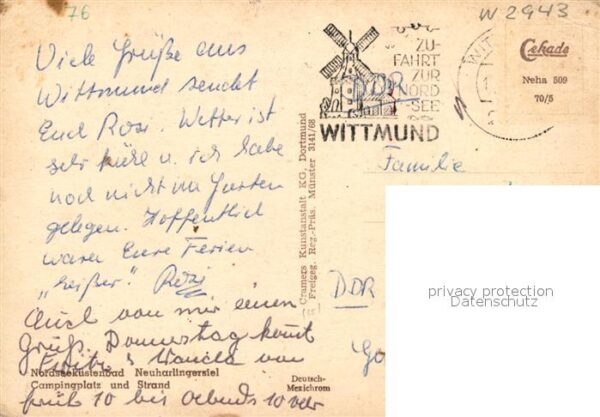 76
W 2943
Viele Grüße aus
Wittmund sendet
Euch Rosi. Wetter ist
sehr kühl u. ich habe
noch nicht im Garten
gelegen. Hoffentlich
waren Eure Ferien
„heißer". Rosi
Auch von mir einen
Gruß. Donnerstag kommt
von
früh 10 bis abends 10 Uhr
Nordseeküstenbad Neuharlingersiel
Campingplatz und Strand
Deutsch-
Mexichrom
Cramers Kunstanstalt KG, Dortmund
Freigeg. Reg.-Präs. Münster 3141/68
ZU-
FAHRT
ZUR
NORD
-SEE
WITTMUND
DDR
WIT
Cekade
Neha 509
70/5
Familie
DDR
privacy protection
Datenschutz